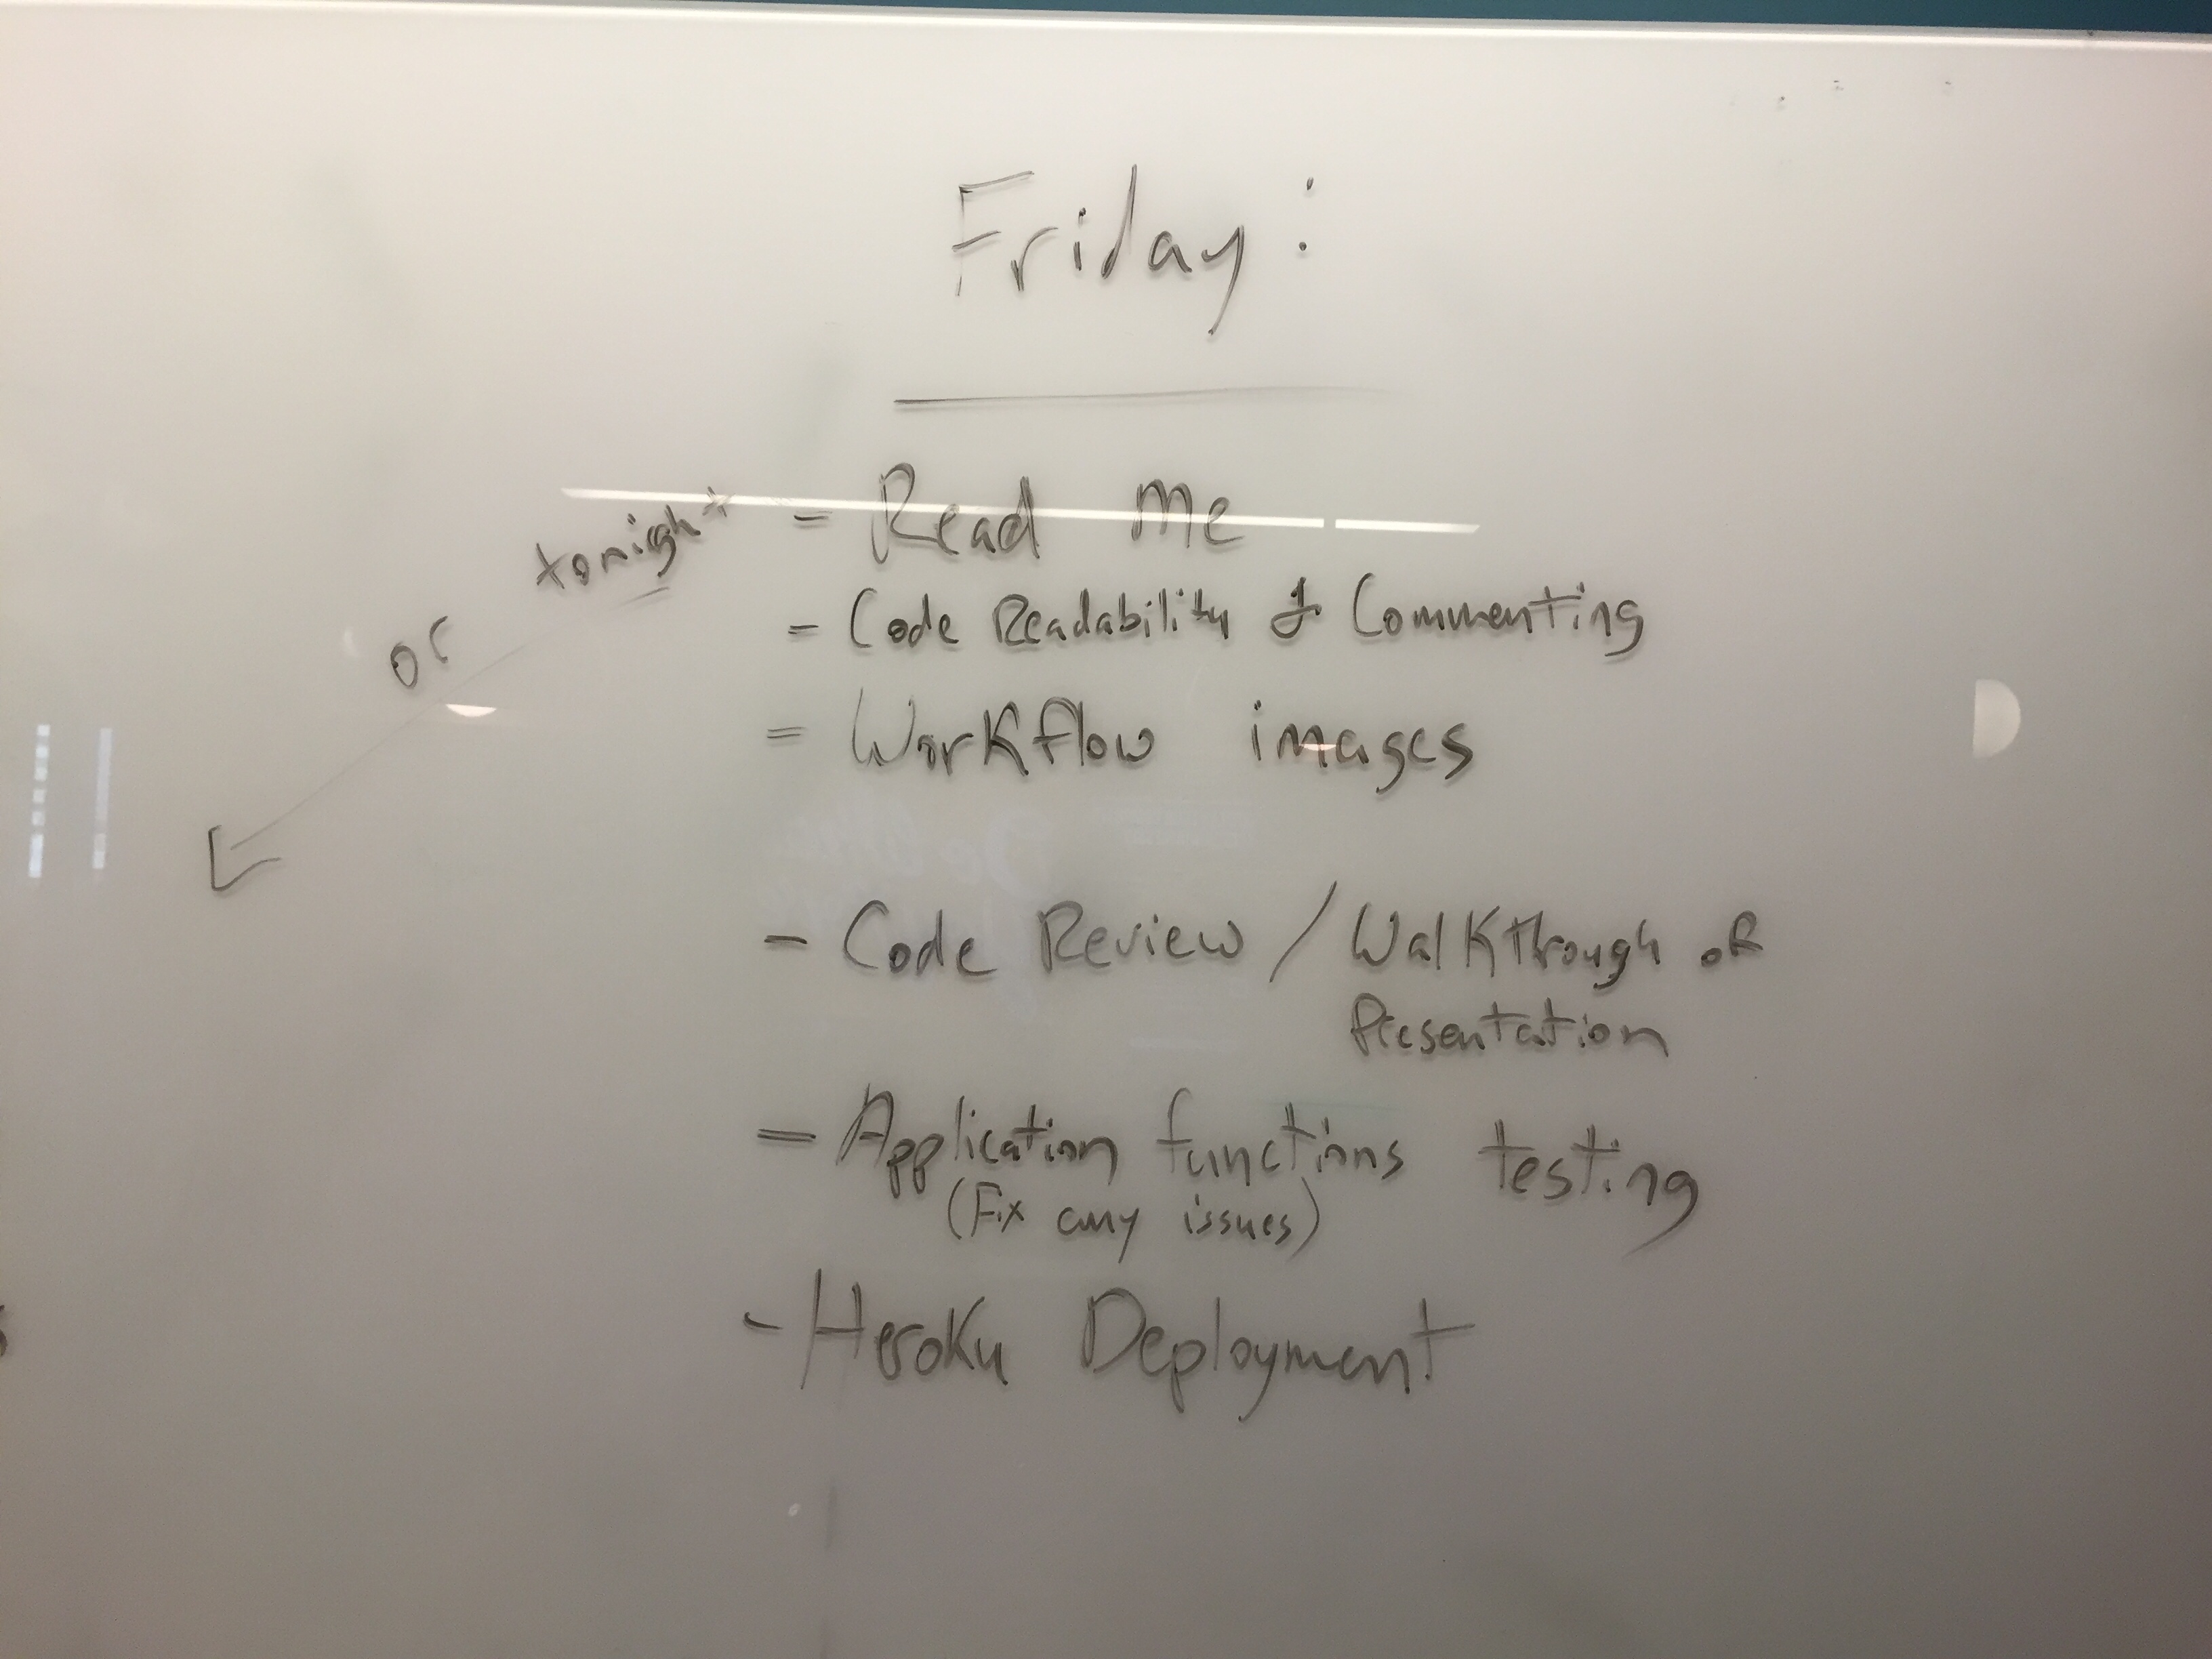 Friday:
or tonight
= Read Me
= Code Readability & Commenting
= Workflow images
- Code Review / Walkthrough of
Presentation
- Application functions testing
(Fix any issues)
- Heroku Deployment